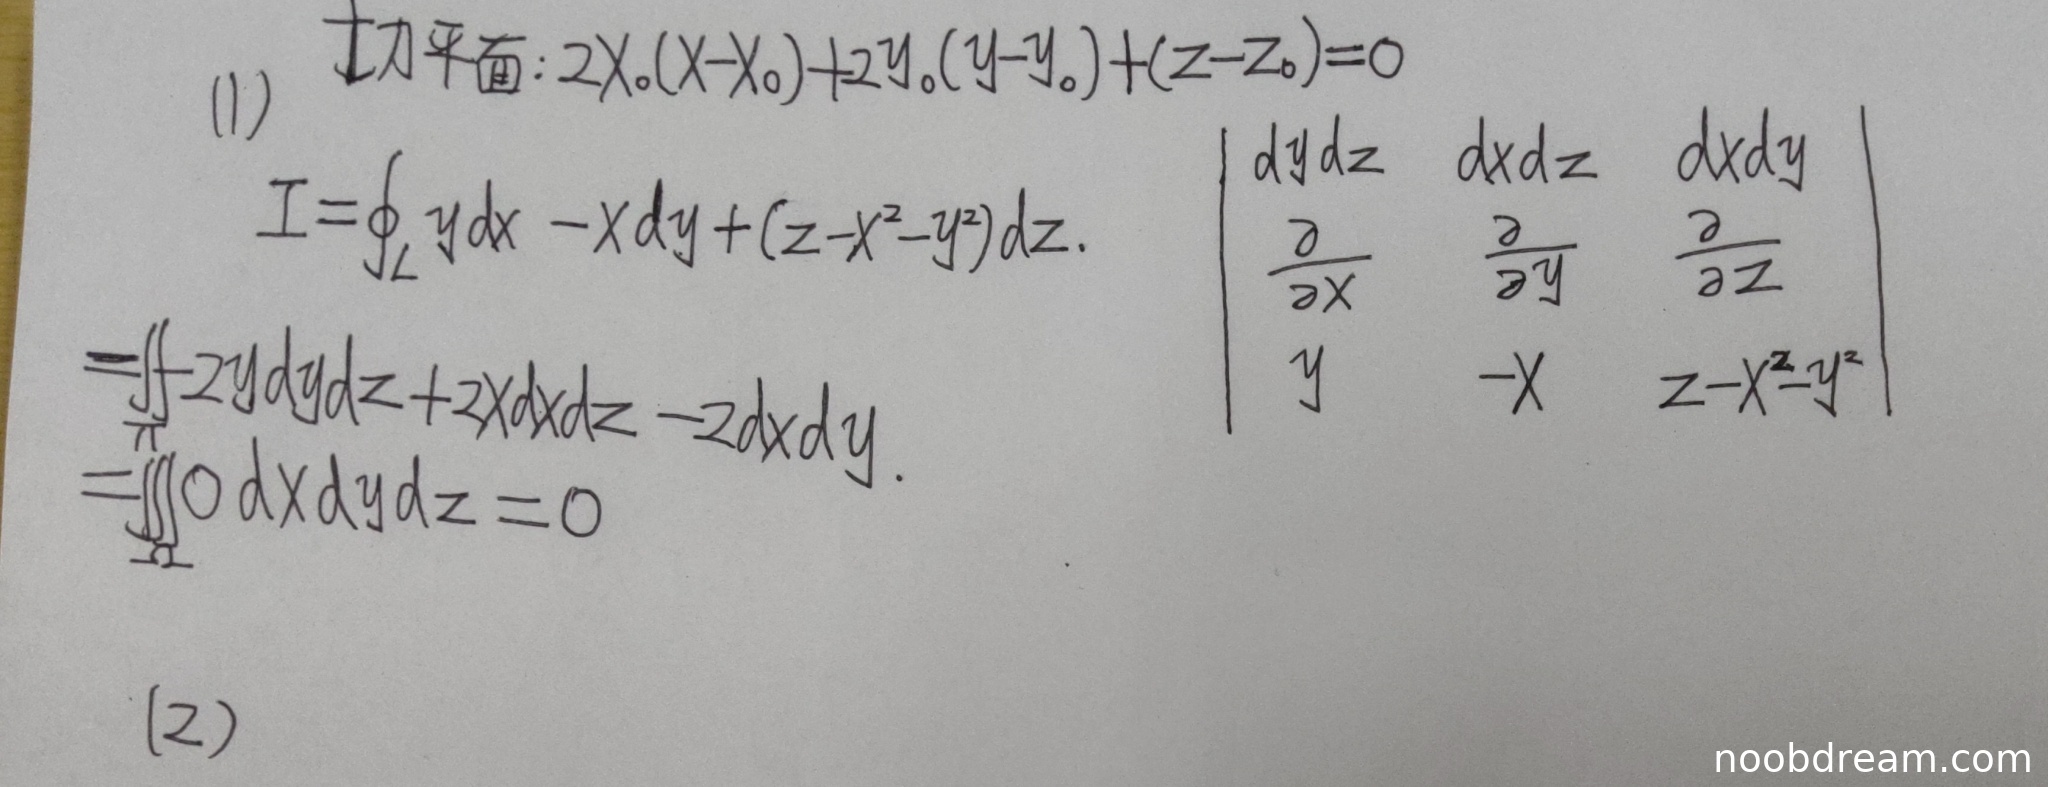 切平面: 2X₀(X-X₀)+2y₀(y-y₀)+(z-z₀)=0
(1)
I=∮_L ydx -xdy+(z-x²-y²)dz.
| dydz dxdz dxdy |
| ∂/∂x ∂/∂y ∂/∂z |
| y -x z-x²-y² |
=∬_π -2ydydz+2xdxdz-2dxdy.
=∭_Ω 0dxdydz=0
(2)
noobdream.com